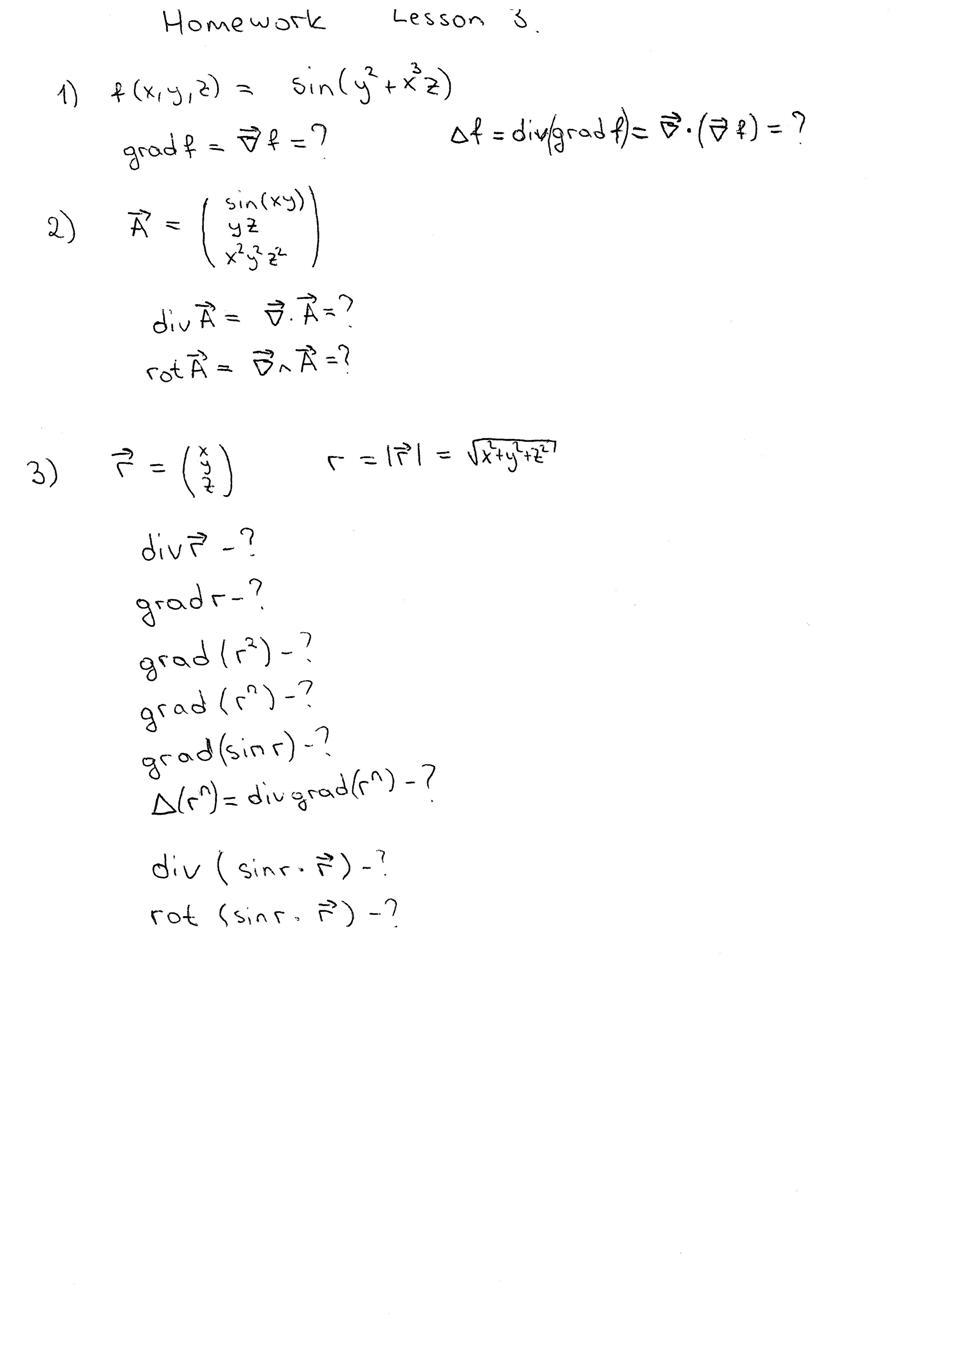 Homework Lesson 3.
1) f(x,y,z) = sin(y²+x³z)
grad f = ∇⃗ f = ? Δf = div(grad f) = ∇⃗·(∇⃗ f) = ?
2) A⃗ = ( sin(xy)
yz
x²y²z² )
div A⃗ = ∇⃗. A⃗ = ?
rot A⃗ = ∇⃗ ∧ A⃗ = ?
3) r⃗ = ( x y z ) r = |r⃗| = √x²+y²+z²
div r⃗ - ?
grad r - ?
grad (r²) - ?
grad (rⁿ) - ?
grad (sin r) - ?
Δ(rⁿ) = div grad(rⁿ) - ?
div ( sin r · r⃗ ) - ?
rot (sin r · r⃗ ) - ?